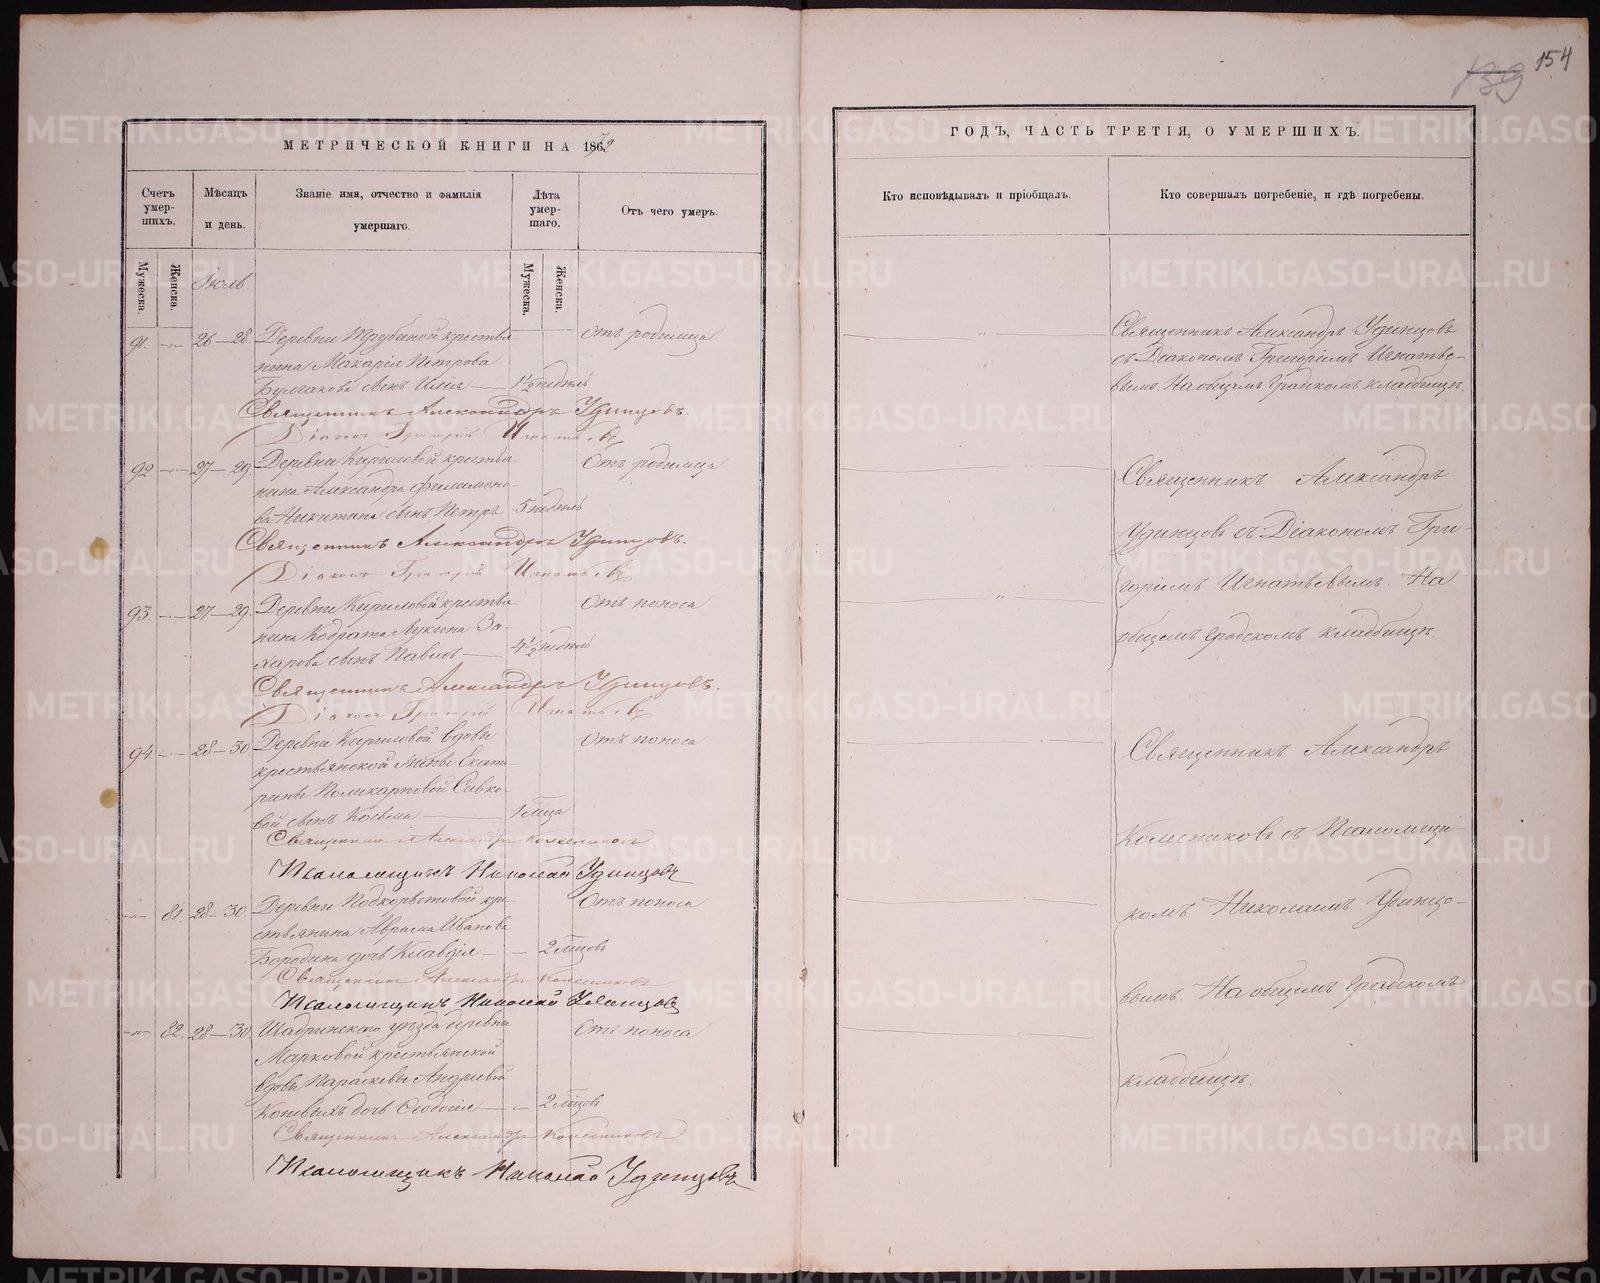 154
139
МЕТРИЧЕСКОЙ КНИГИ НА 1872
ГОДЪ, ЧАСТЬ ТРЕТІЯ, О УМЕРШИХЪ.
Счетъ умер-шихъ.
Мужеска.
Женска.
Мѣсяцъ и день.
Званіе имя, отчество и фамилія умершаго.
Лѣта умер-шаго.
Мужеска.
Женска.
Отъ чего умеръ.
Кто исповѣдывалъ и пріобщалъ.
Кто совершалъ погребеніе, и гдѣ погребены.
Іюль
91. 26—28. Деревни Трубиной крестья-
нина Макарія Петрова
Булгакова сынъ Илія — 1½ недѣль
Отъ родимца
Священникъ Александръ Удинцовъ
съ Діакономъ Григоріемъ Игнатье-
вымъ. На общемъ градскомъ кладбищѣ.
Священникъ Александръ Удинцовъ.
Діаконъ Григорій Игнатьевъ
92 27—29. Деревни Кириловой крестья
нина Александра Филимоно-
ва Никитина сынъ Петръ 5 недѣль
Отъ родимца
Священникъ Александръ Удинцовъ.
Діаконъ Григорій Игнатьевъ
93 27—29. Деревни Кириловой крестья
нина Кодрата Лукина За-
харова сынъ Павелъ — 4½ недѣль
Отъ поноса
Священникъ Александръ
Удинцовъ съ Діакономъ Гри-
горіемъ Игнатьевымъ. На
общемъ градскомъ кладбищѣ.
Священникъ Александръ Удинцовъ.
Діаконъ Григорій Игнатьевъ
94 28—30 Деревни Кириловой вдовы
крестьянской жены Екате-
рины Поликарповой Сивко-
вой сынъ Косьма — 1 мѣсца
Отъ поноса
Священникъ Александръ Колесниковъ
Псаломщикъ Николай Удинцовъ
81. 28—30. Деревни Подкорытовой кре-
стьянина Аврама Иванова
Бородина дочь Клавдія — 2 мѣсцовъ
Отъ поноса
Священникъ Александръ Колесниковъ
Псаломщикъ Николай Удинцовъ
82. 28—30. Шадринскаго уѣзда деревни
Марковой крестьянской
вдовы Параскевы Андреевой
Копевыхъ дочь Ѳеодосія — 2 мѣсцовъ
Отъ поноса
Священникъ Александръ
Колесниковъ съ Псаломщи-
комъ Николаемъ Удинцо-
вымъ. На общемъ градскомъ
кладбищѣ.
Священникъ Александръ Колесниковъ
Псаломщикъ Николай Удинцовъ
METRIKI.GASO-URAL.RU